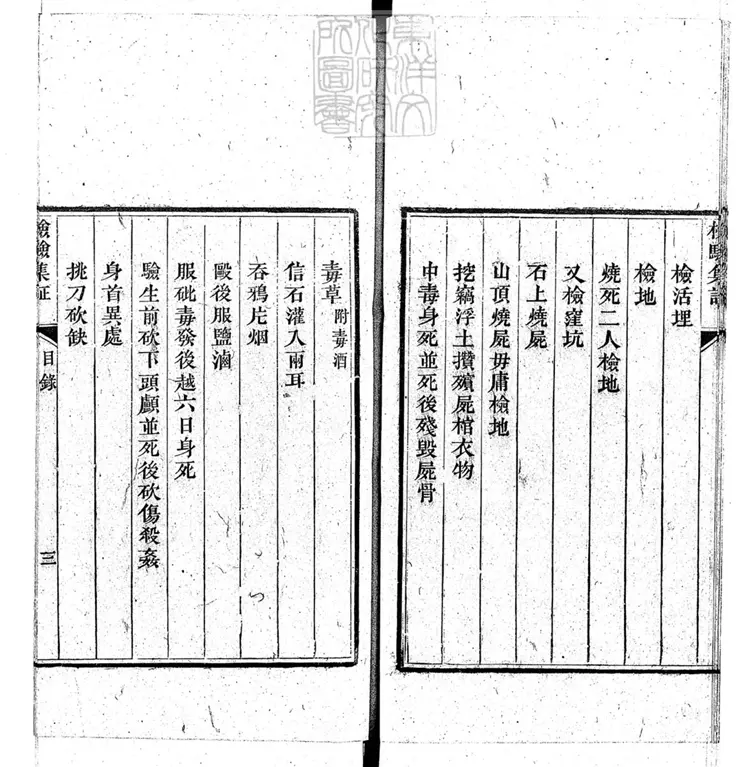 東洋文
化研究
所圖書
檢驗集證
檢活埋
檢地
燒死二人檢地
又檢窪坑
石上燒屍
山頂燒屍毋庸檢地
挖竊浮土攢殯屍棺衣物
中毒身死並死後殘毀屍骨
毒草附毒酒
信石灌入兩耳
吞鴉片烟
毆後服鹽滷
服砒毒發後越六日身死
驗生前砍下頭顱並死後砍傷殺姦
身首異處
挑刀砍缺
檢驗集証
目錄
三